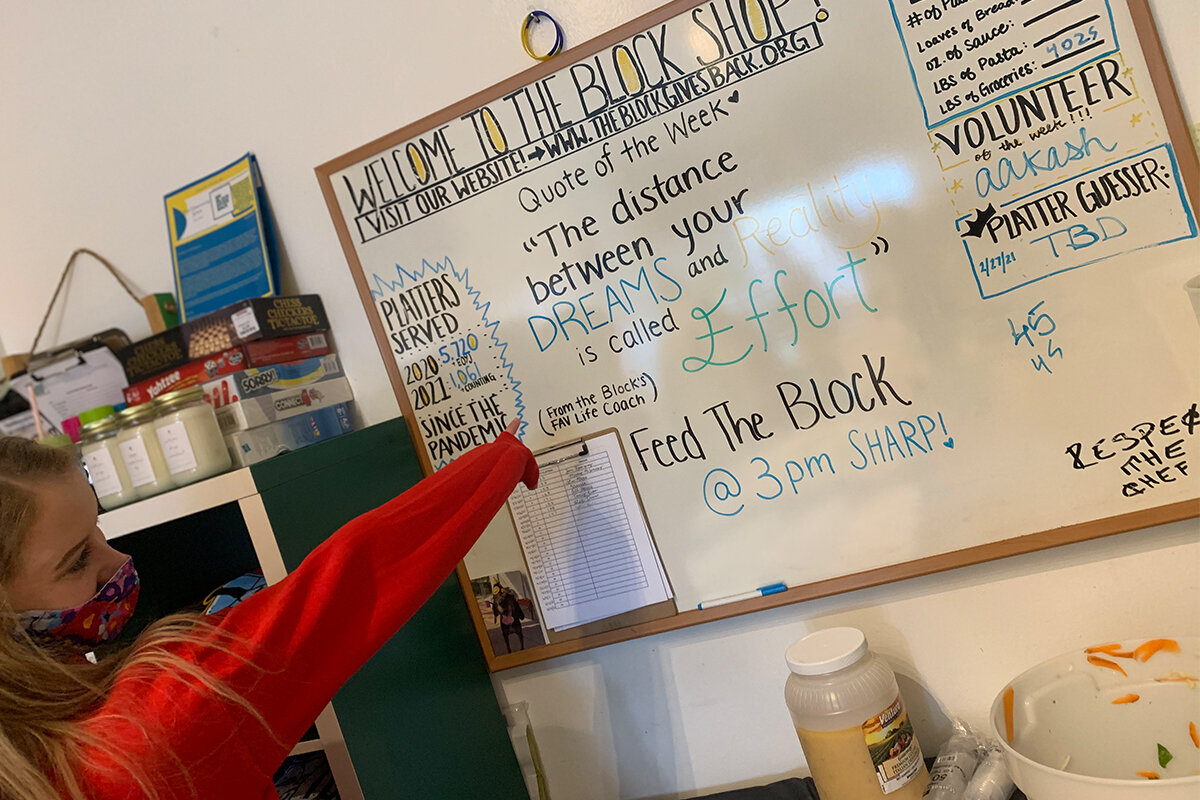 WELCOME TO THE BLOCK SHOP!
VISIT OUR WEBSITE! → WWW.THEBLOCKGIVESBACK.ORG
Quote of the Week ♥
"The distance
between your
DREAMS and Reality
is called Effort"
(From the Block's
FAV Life Coach)
PLATTERS
SERVED
2020: 5,720
2021: 1,061
+ COUNTING
SINCE THE
PANDEMIC
Feed The Block
@ 3pm SHARP!
# of
Loaves of Bread:
oz. of Sauce:
LBS of Pasta:
LBS of Groceries: 4025
VOLUNTEER
of the week!!!
aakash
PLATTER GUESSER:
2/27/21 TBD
45
45
RESPECT
THE
CHEF
CHESS
CHECKERS
TIC TAC TOE
Yahtzee
SORRY!
CONNECT
Ventura